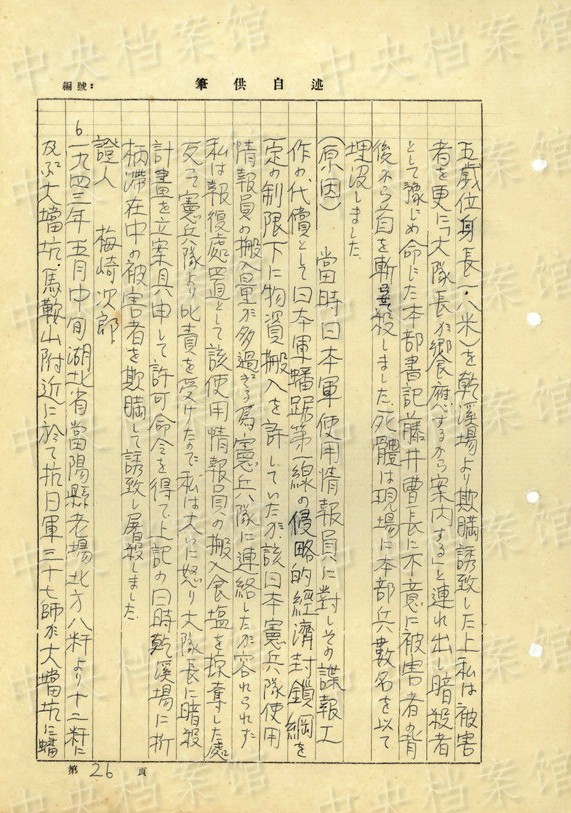 編號：
述自供筆
五歳位身長一·八米)を乾溪場より欺瞞誘致した上私は被害
者を更に「大隊長が饗食應するから案内する」と連れ出し暗殺者
として豫じめ命じた本部書記藤井曹長に不意に被害者の背
後から首を斬り殺しました、死體は現場に本部兵数名を以て
埋没しました
(原因) 當時日本軍使用情報員に對しその諜報工
作の代償として日本軍蟠踞第一線の侵略的經濟封鎖綱を
一定の制限下に物資搬入を許していたが該日本憲兵隊使用
情報員の搬入量が多過ぎる為憲兵隊に連絡したが容れられず
私は報復處置として該使用情報員の搬入食塩を掠奪した處
反って憲兵隊より叱責を受けたので私は大いに怒り大隊長に暗殺
計畫を立案具申して許可命令を得て上記の日時乾溪場に折
柄滞在中の被害者を欺瞞して誘致し屠殺しました
證人 梅崎次郎
6 一九四三年五月中旬湖北省當陽縣老場北方八粁より十二粁に
及ぶ大壋坑馬鞍山附近に於て抗日軍三十七師が大壋坑に蟠
第 26 頁
中央档案馆